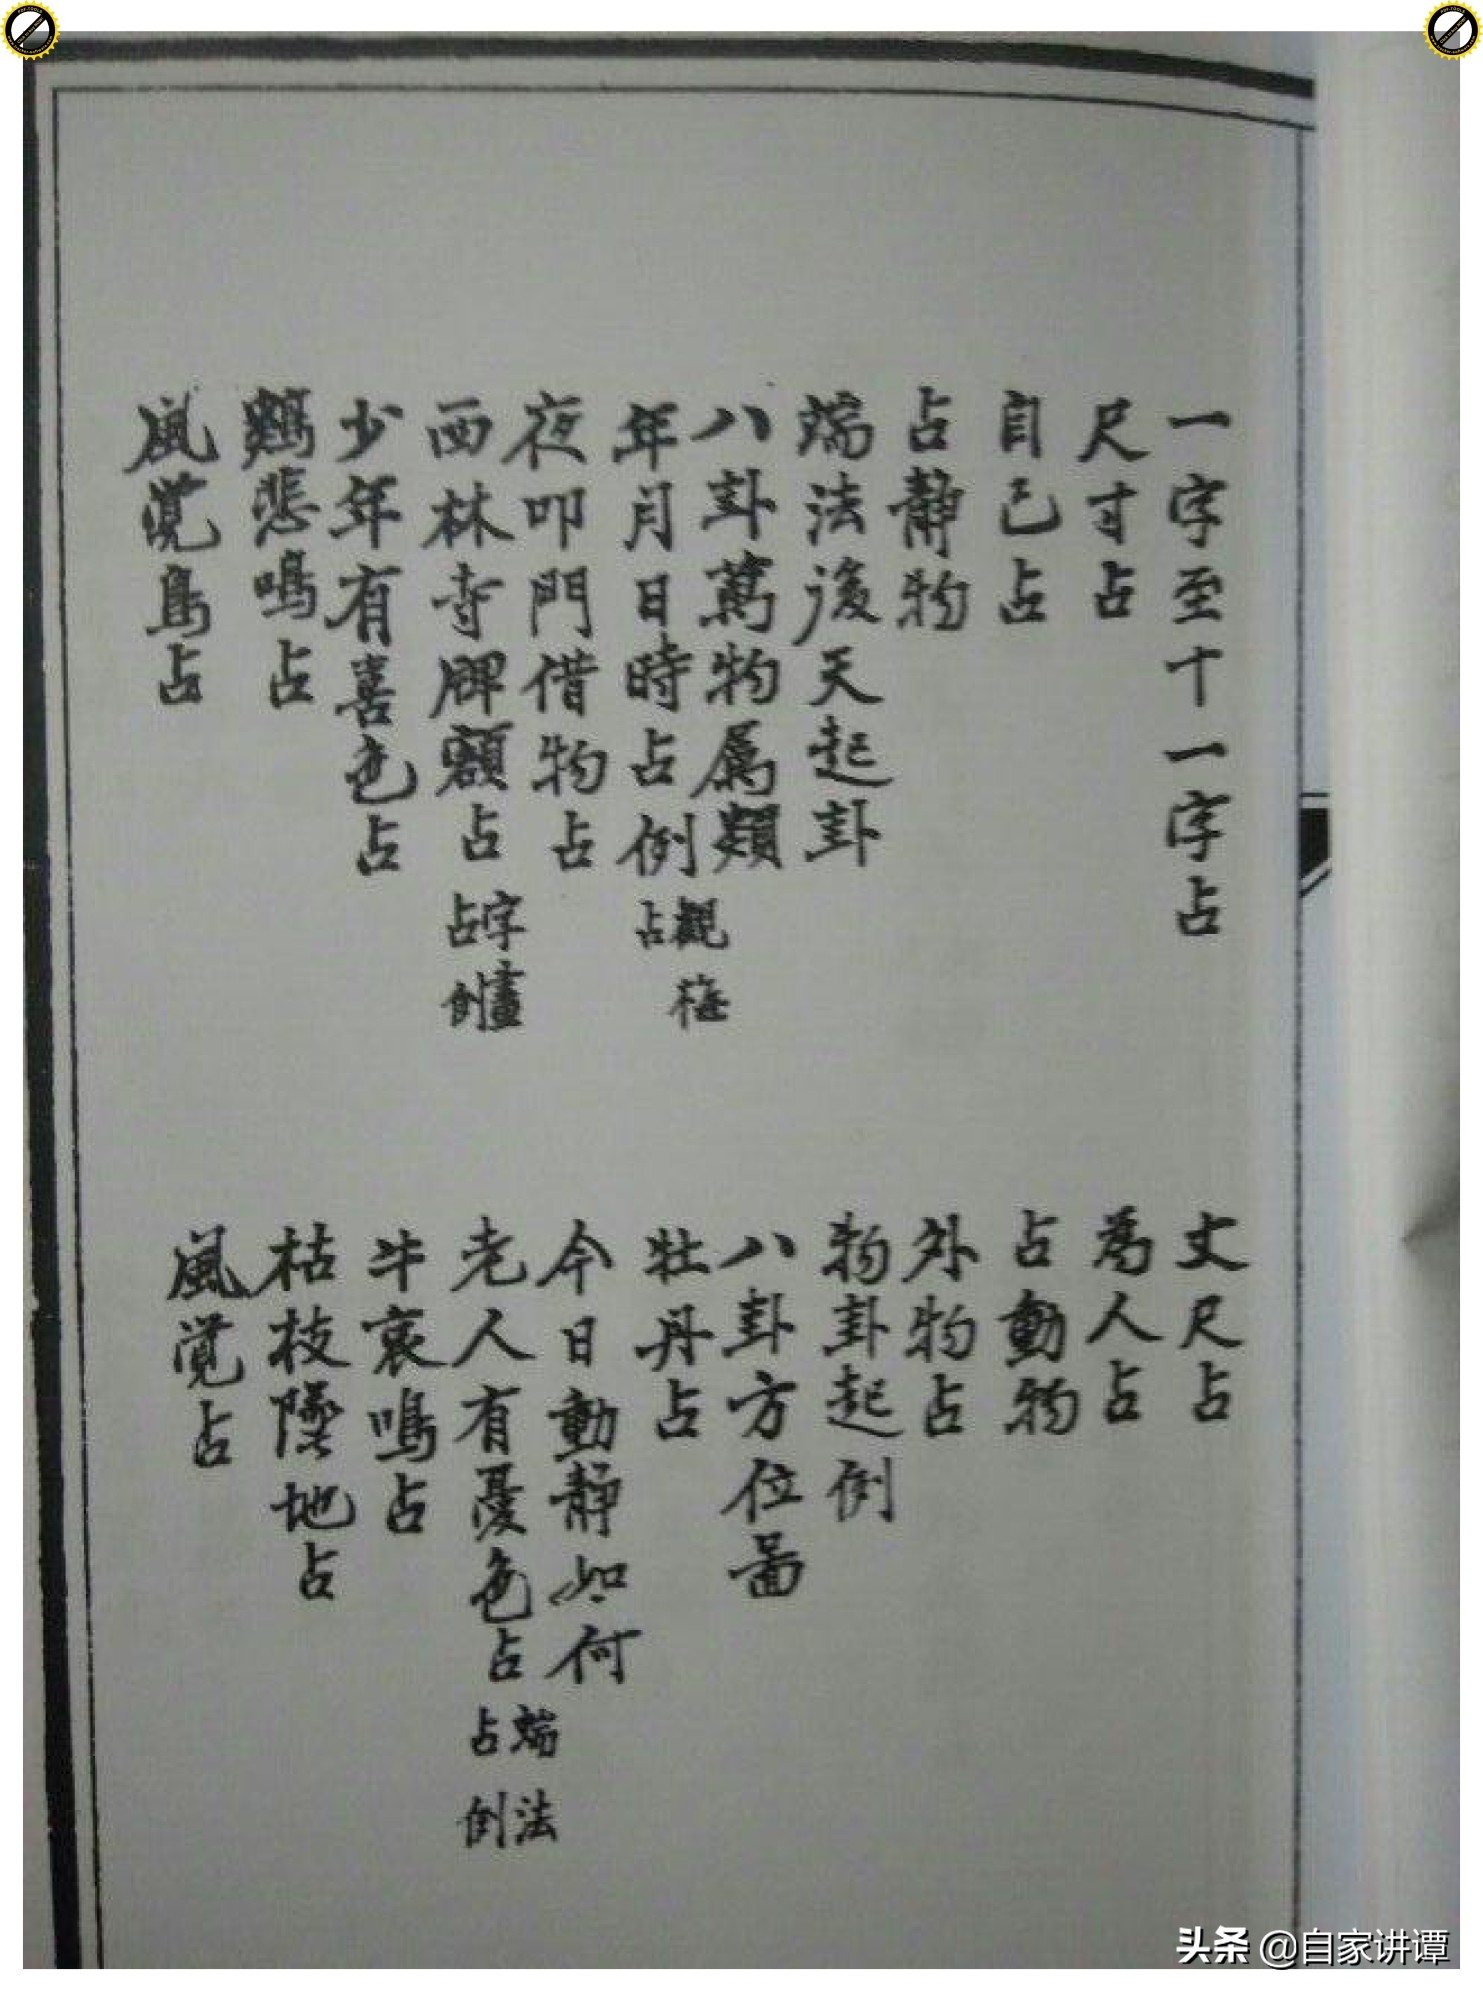 一字至十一字占
丈尺占
尺寸占
為人占
自己占
占動物
占靜物
外物占
端法後天起卦
物卦起例
八卦萬物属類
八卦方位啚
年月日時占例 觀梅占
牡丹占
夜叩門借物占
今日動靜如何
西林寺牌額占 字畫占例
老人有憂色占 端法占例
少年有喜色占
牛哀鳴占
鷄悲鳴占
枯枝墜地占
風覚鳥占
風覚占
头条 @自家讲谭